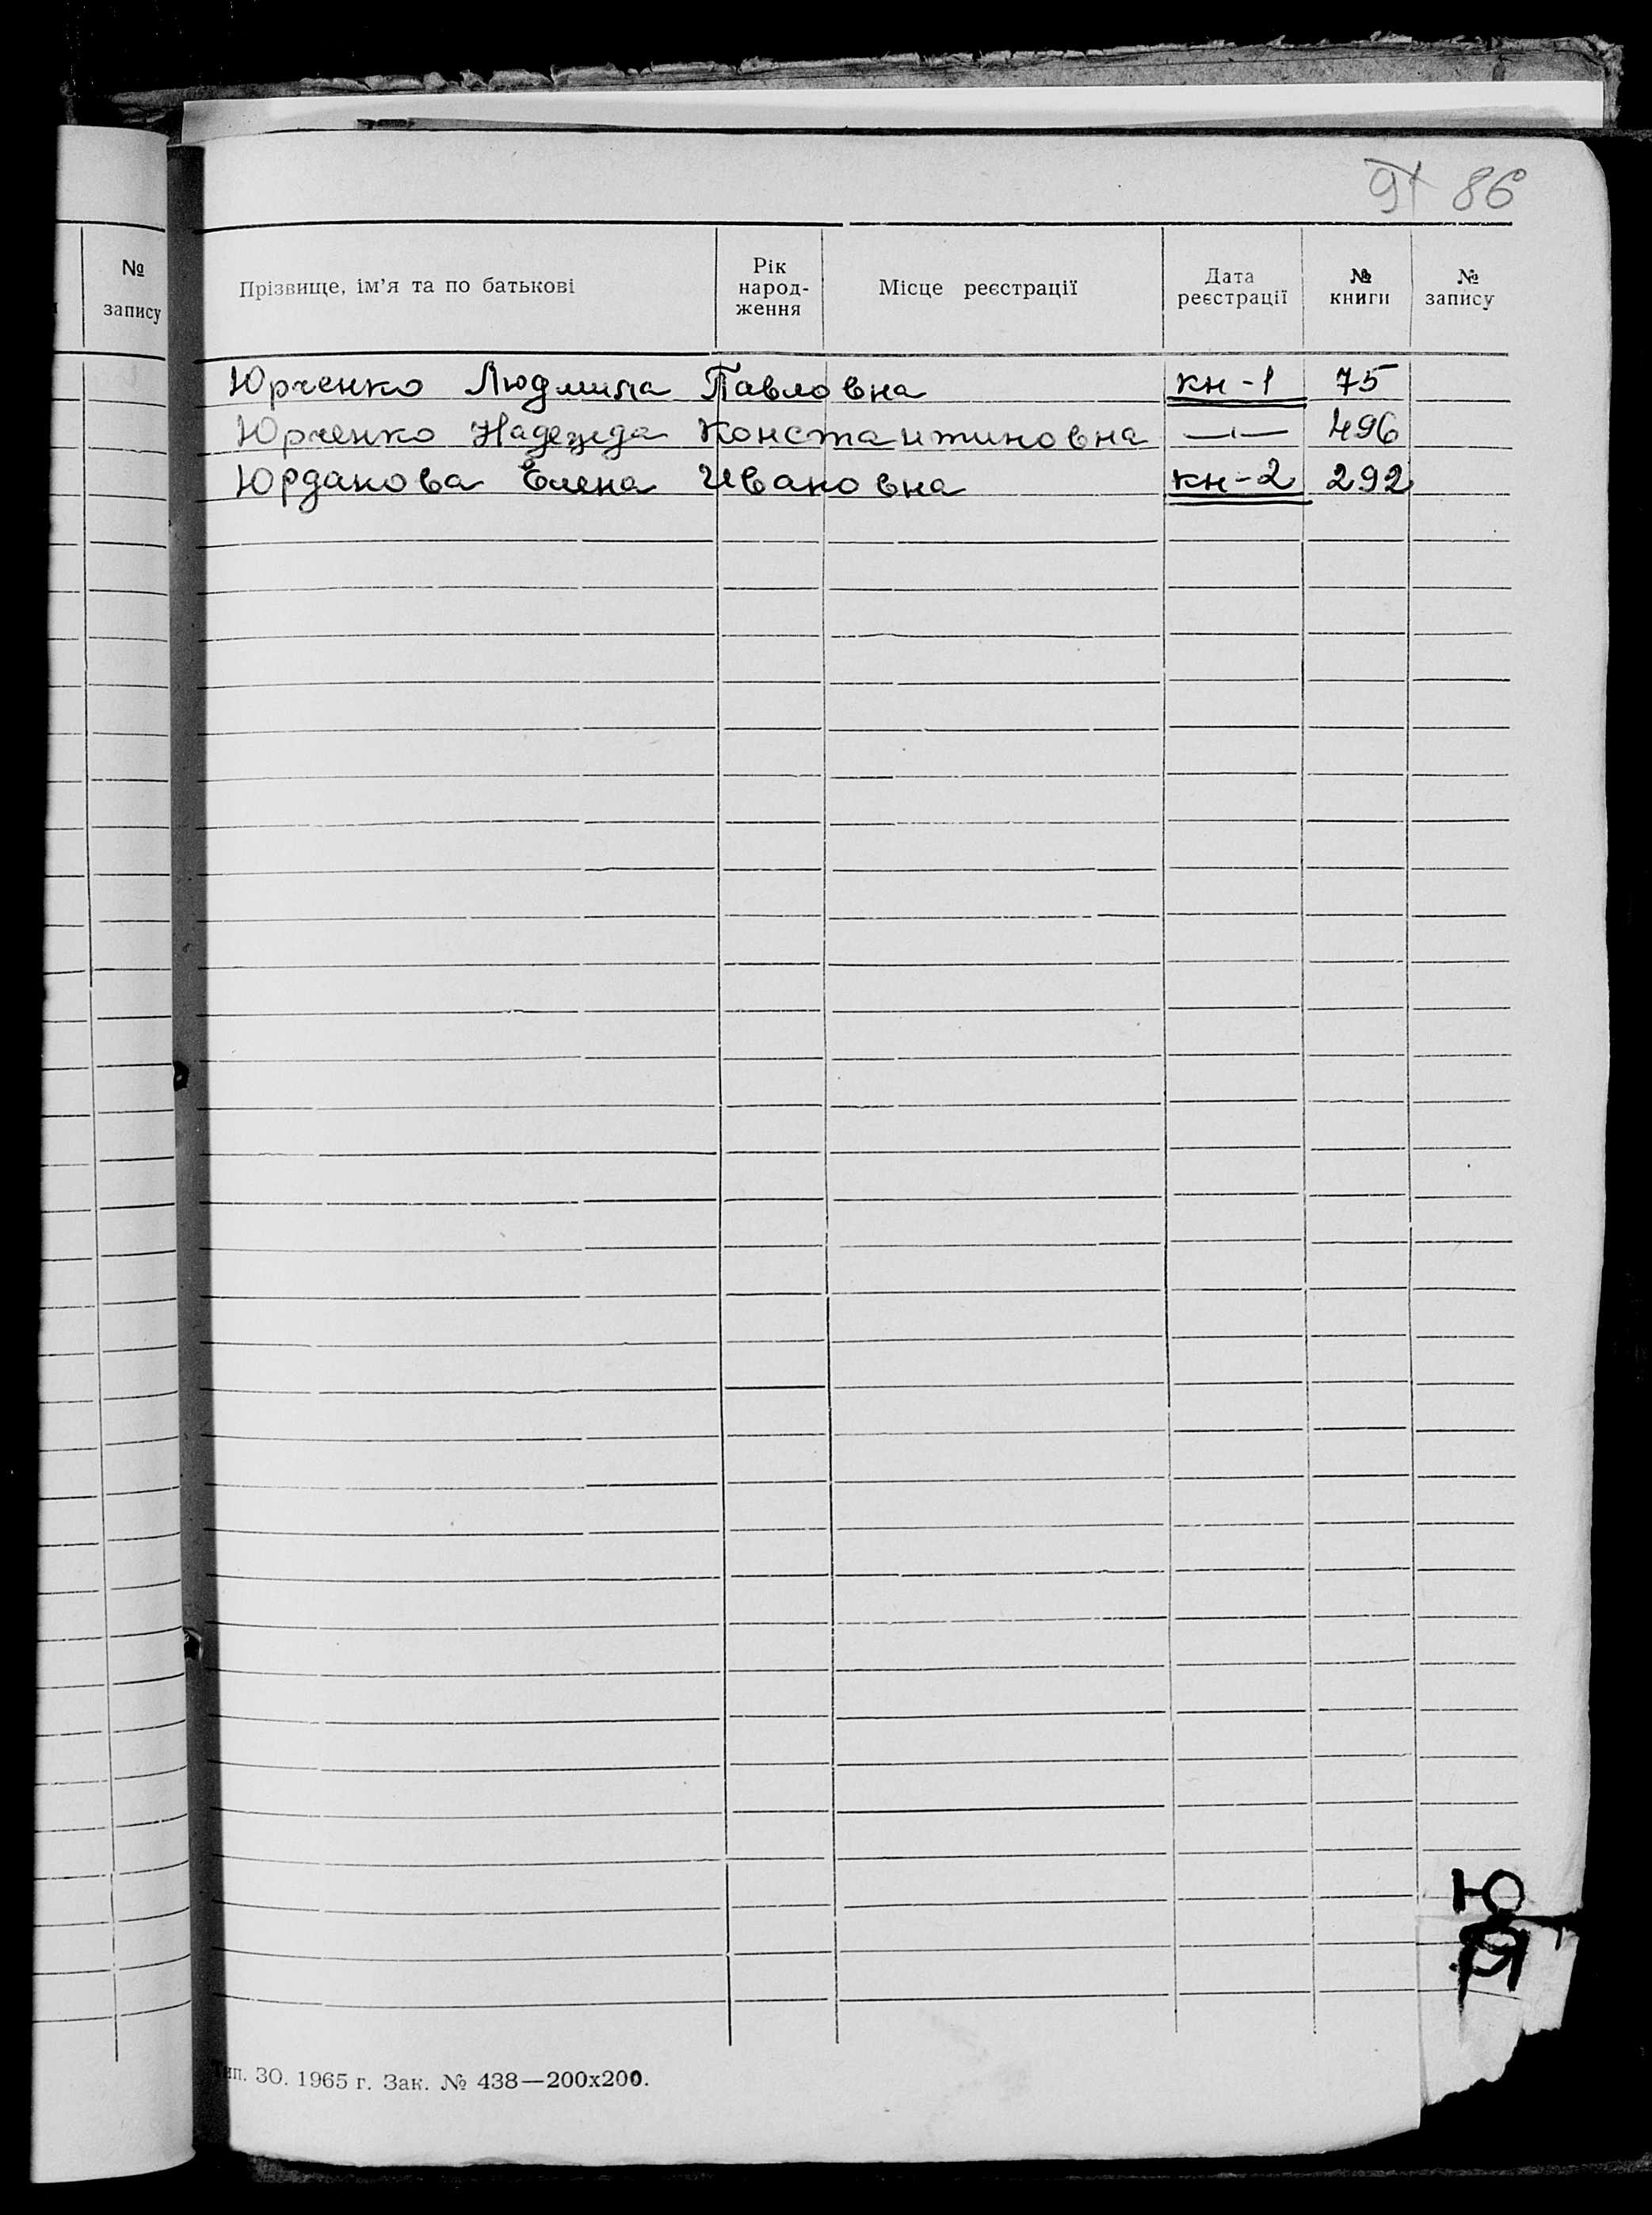 91 86
№
запису
Прізвище, ім'я та по батькові
Рік
народ-
ження
Місце реєстрації
Дата
реєстрації
№
книги
№
запису
Юрченко Людмила Павловна кн-1 75
Юрченко Надежда Константиновна —"— 496
Юрданова Елена Ивановна кн-2 292
Ю
Я
Тип. ЗО. 1965 г. Зак. № 438—200х200.